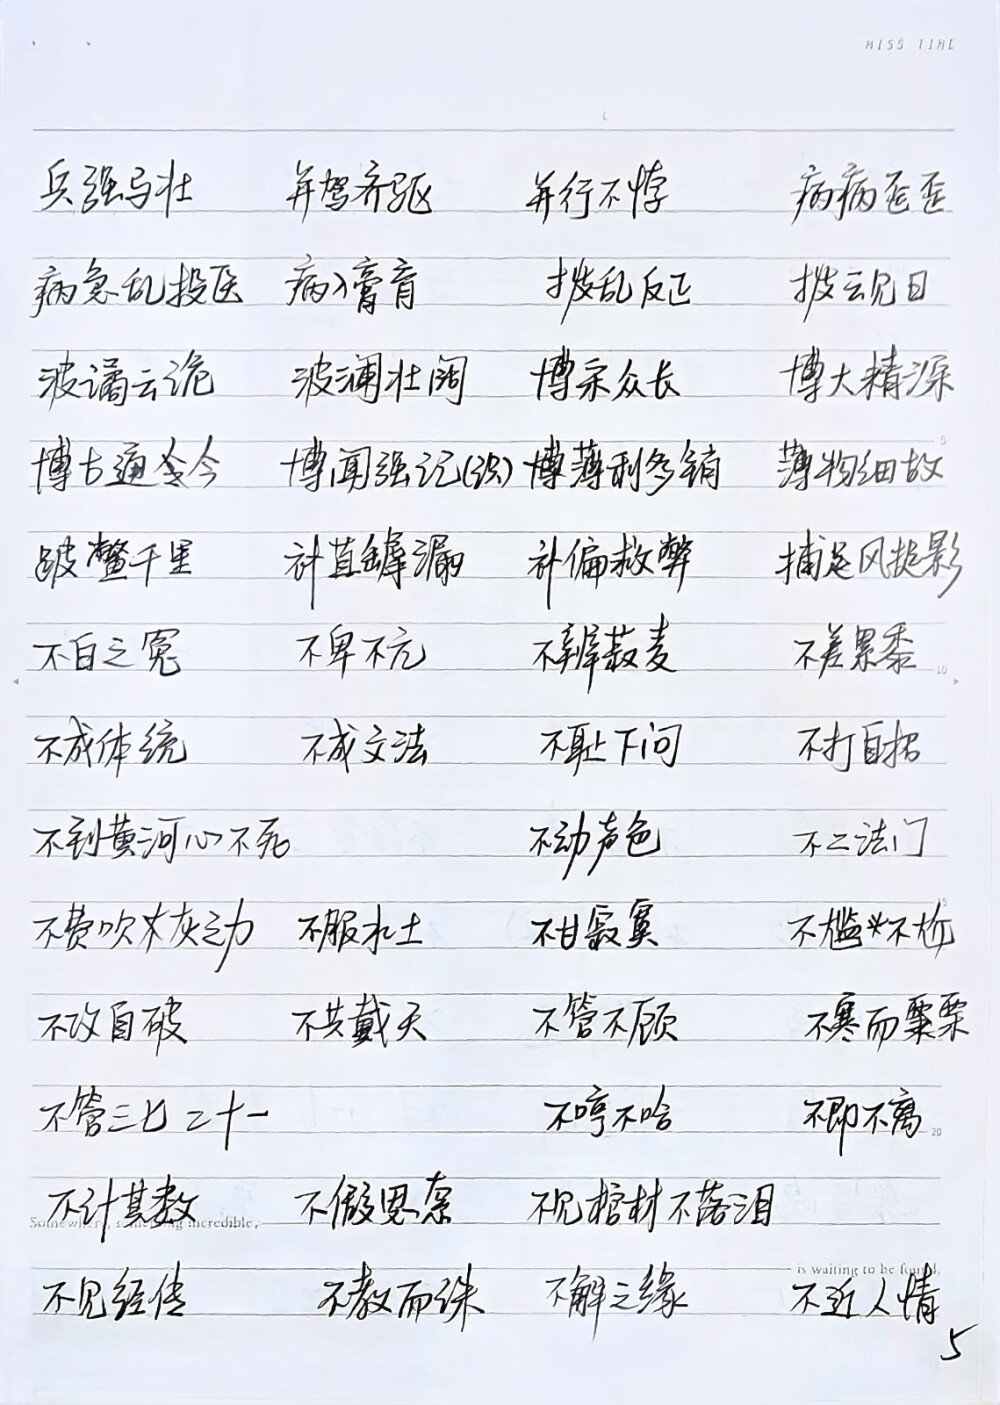 MISS TIME
兵强马壮 并驾齐驱 并行不悖 病病歪歪
病急乱投医 病入膏肓 拨乱反正 拨云见日
波谲云诡 波澜壮阔 博采众长 博大精深
博古通今 博闻强记(识) 博薄利多销 薄物细故
跛鳖千里 补苴罅漏 补偏救弊 捕风捉影
不白之冤 不卑不亢 不辨菽麦 不差累黍
不成体统 不成文法 不耻下问 不打自招
不到黄河心不死 不动声色 不二法门
不费吹灰之力 不服水土 不甘寂寞 不尴不尬
不攻自破 不共戴天 不管不顾 不寒而栗
不管三七二十一 不哼不哈 不即不离
不计其数 不假思索 不见棺材不落泪
Somewhere, something incredible,
is waiting to be found.
不见经传 不教而诛 不解之缘 不近人情
5